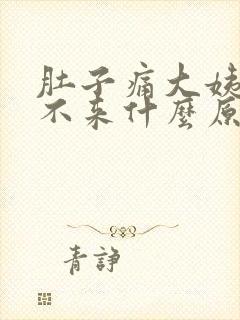 肚子痛大姨
不来什麼原
青諍